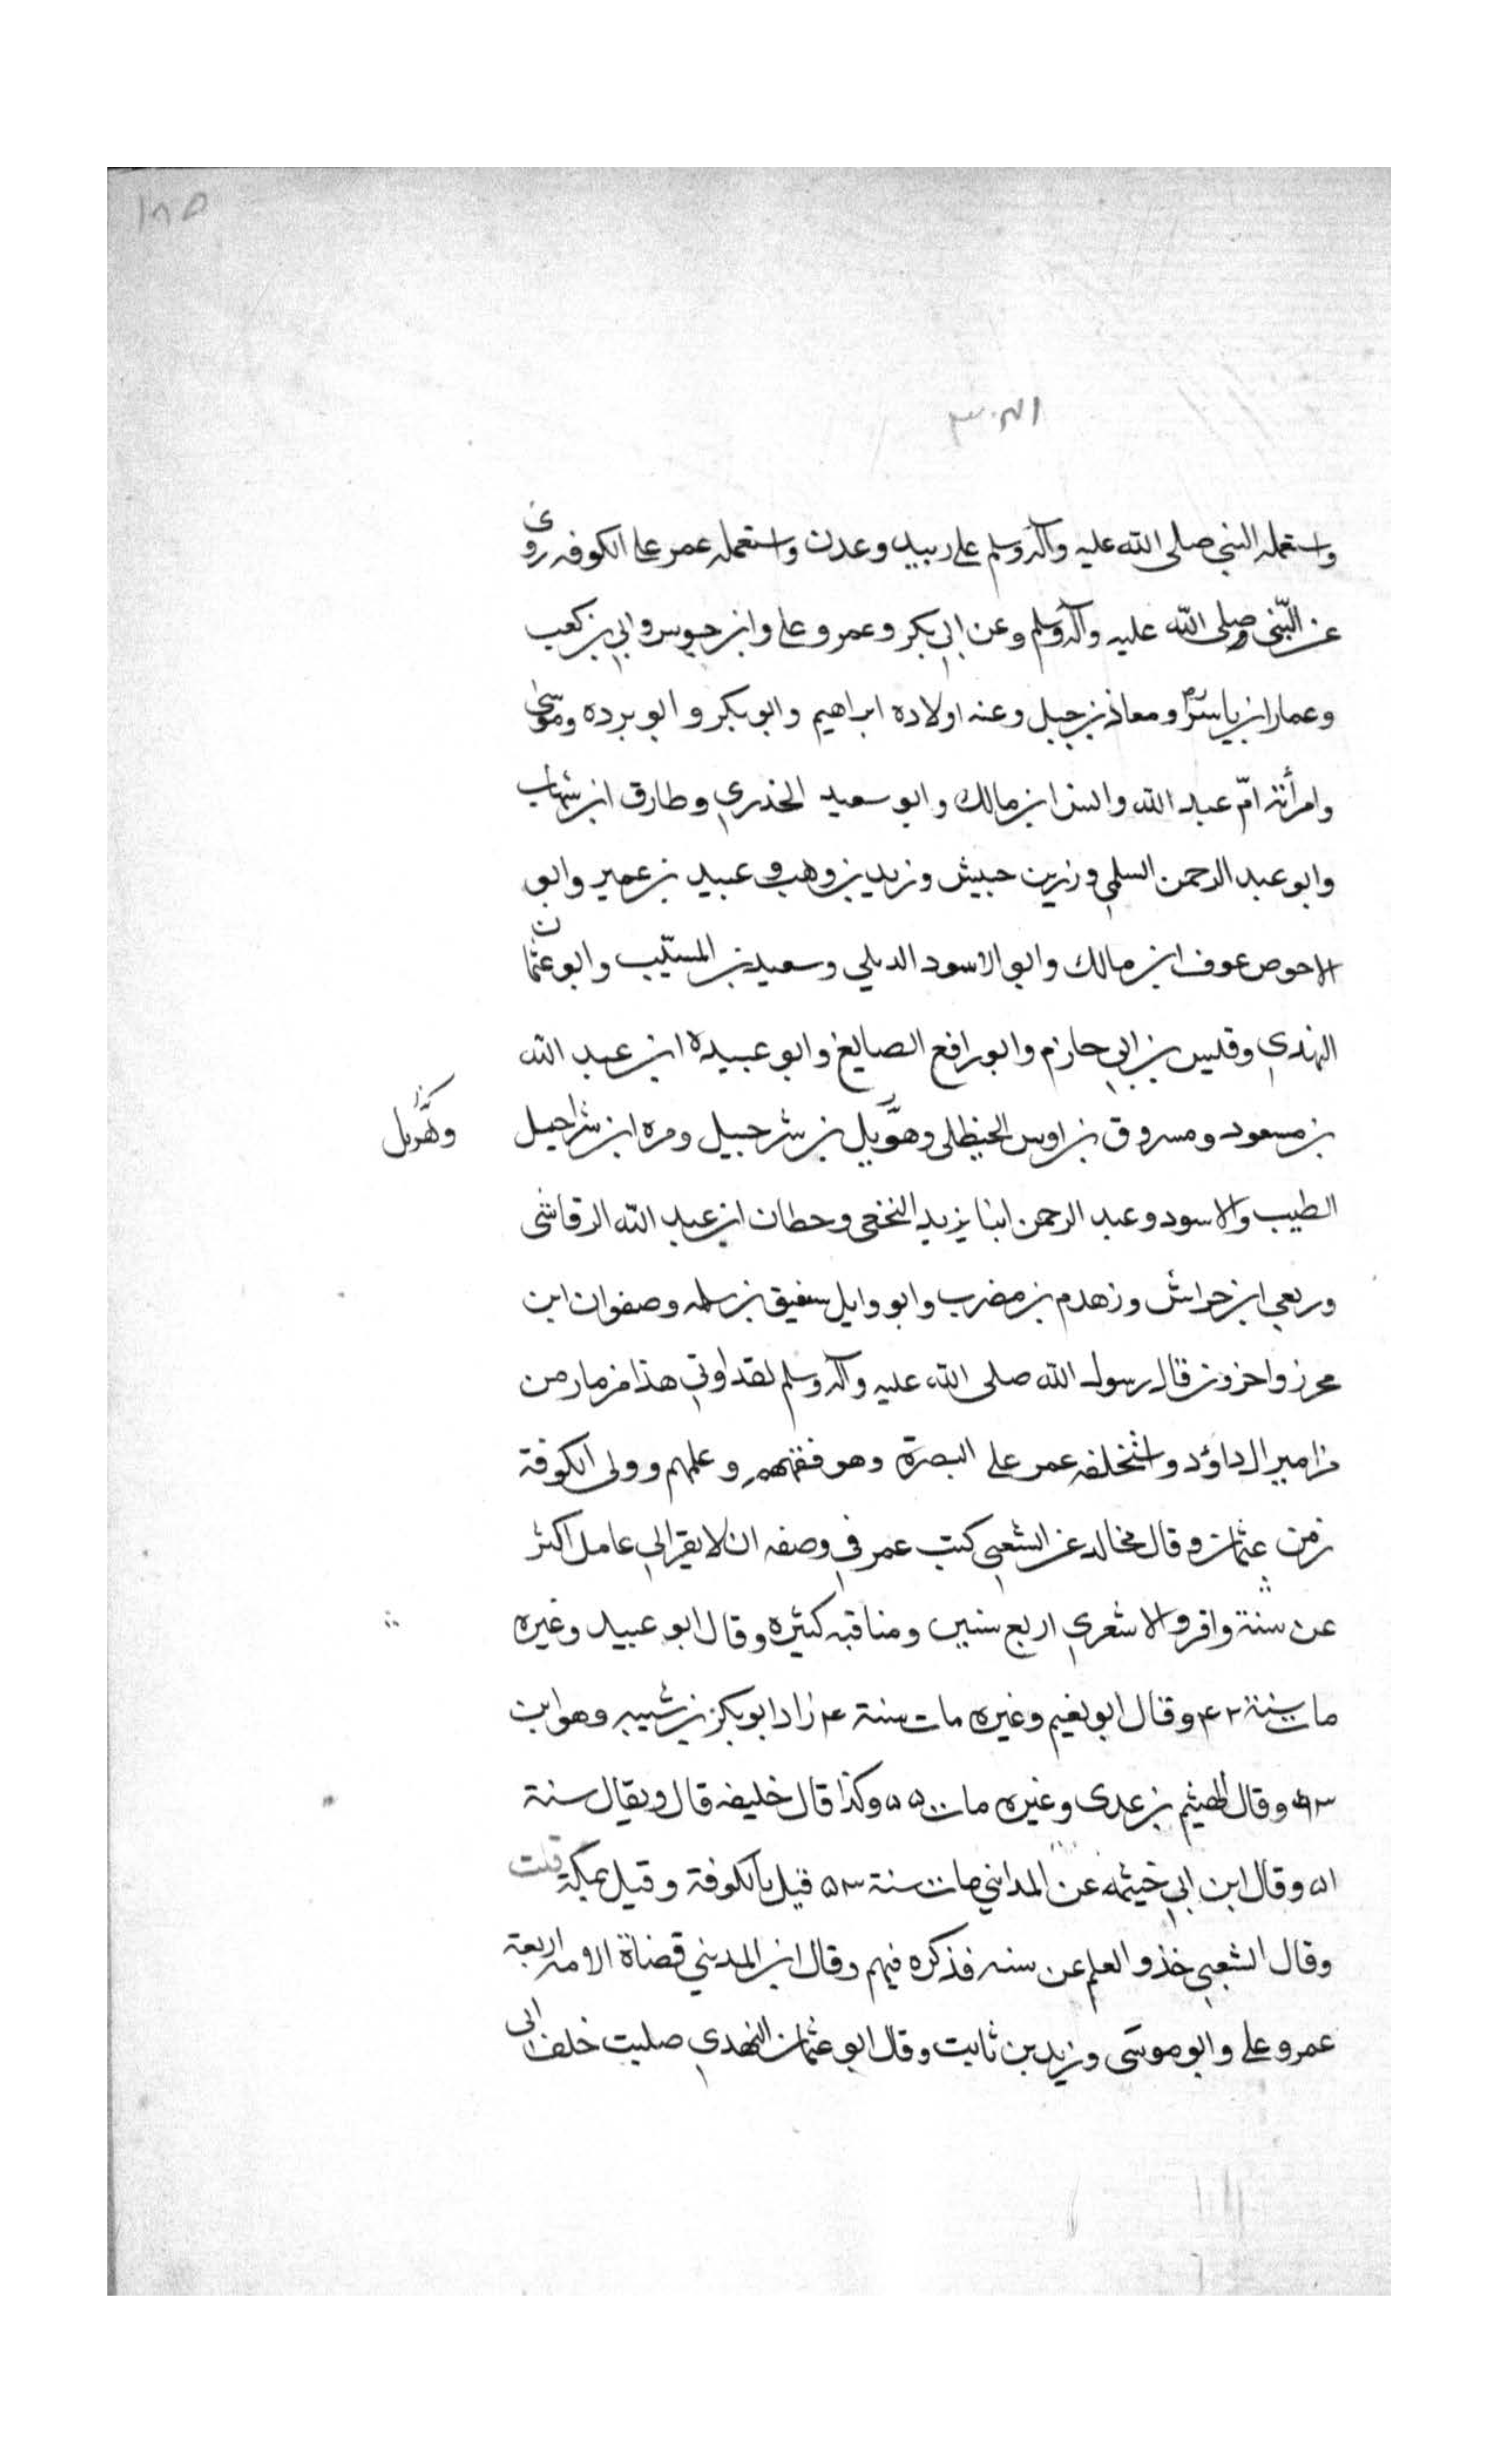 واستعمله النبي صلى الله عليه وآله وسلم على ربيد وعدن واستعمله عمر على الكوفه روى
عن النبي صلى الله عليه وآله وسلم وعن ابي بكر وعمر وعلي وابن وابي بن كعب
وعمار ابن ياسر ومعاذ بن جبل وعنه اولاده ابراهيم وابو بكر وابو برده وموسى
وامرأته امّ عبد الله وانس ابن مالك وابو سعيد الخذري وطارق ابن شهاب
وابو عبد الرحمن السلمي وزر بن حبيش وزيد بن وهب وعبيد بن عمير وابو
الاحوص عوف ابن مالك وابو الاسود الديلي وسعيد بن المسيّب وابو عثمان
النهدي وقيس بن ابي حازم وابو رافع الصايغ وابو عبيده ابن عبد الله
بن مسعود ومسروق بن اوس الحنظلي وهزيل بن شرحبيل ومره ابن شراحيل
وهزيل
الطيب والاسود وعبد الرحمن ابنا يزيد النخعي وحطان ابن عبد الله الرقاشى
وربعي ابن حراش وزهدم بن مضرب وابو وايل سفيق بن سلمه وصفوان ابن
محرز واخرون قال رسول الله صلى الله عليه وآله وسلم لقد اوتي هذا مزمار من
مزامير ال داؤد واستخلفه عمر على البصرة وهو فقههم وعلمهم وولى الكوفة
زمن عثمان وقال مخالد عن الشعبي كتب عمر في وصفه ان لا يقر الي عامل اكثر
عن سنة واقرو الاشعري اربع سنين ومناقبه كثيره وقال ابو عبيد وغيره
مات سنة ۴۲ وقال ابو نعيم وغيره مات سنة ۴ زاد ابو بكر بن شيبه وهو ابن
۶۳ وقال الهيثم بن عدى وغيره مات ۵۵ وكذا قال خليفه قال ويقال سنة
۵۱ وقال ابن ابي خيثمه عن المدايني مات سنة ۵۳ قيل بالكوفة وقيل بمكة قلت
وقال الشعبي خذو العلم عن سته فذكره فيهم وقال ابن المديني قضاة الامه اربعة
عمر وعلى وابو موسى وزيد بن ثابت وقال ابو عثمان النهدي صليت خلف ابى